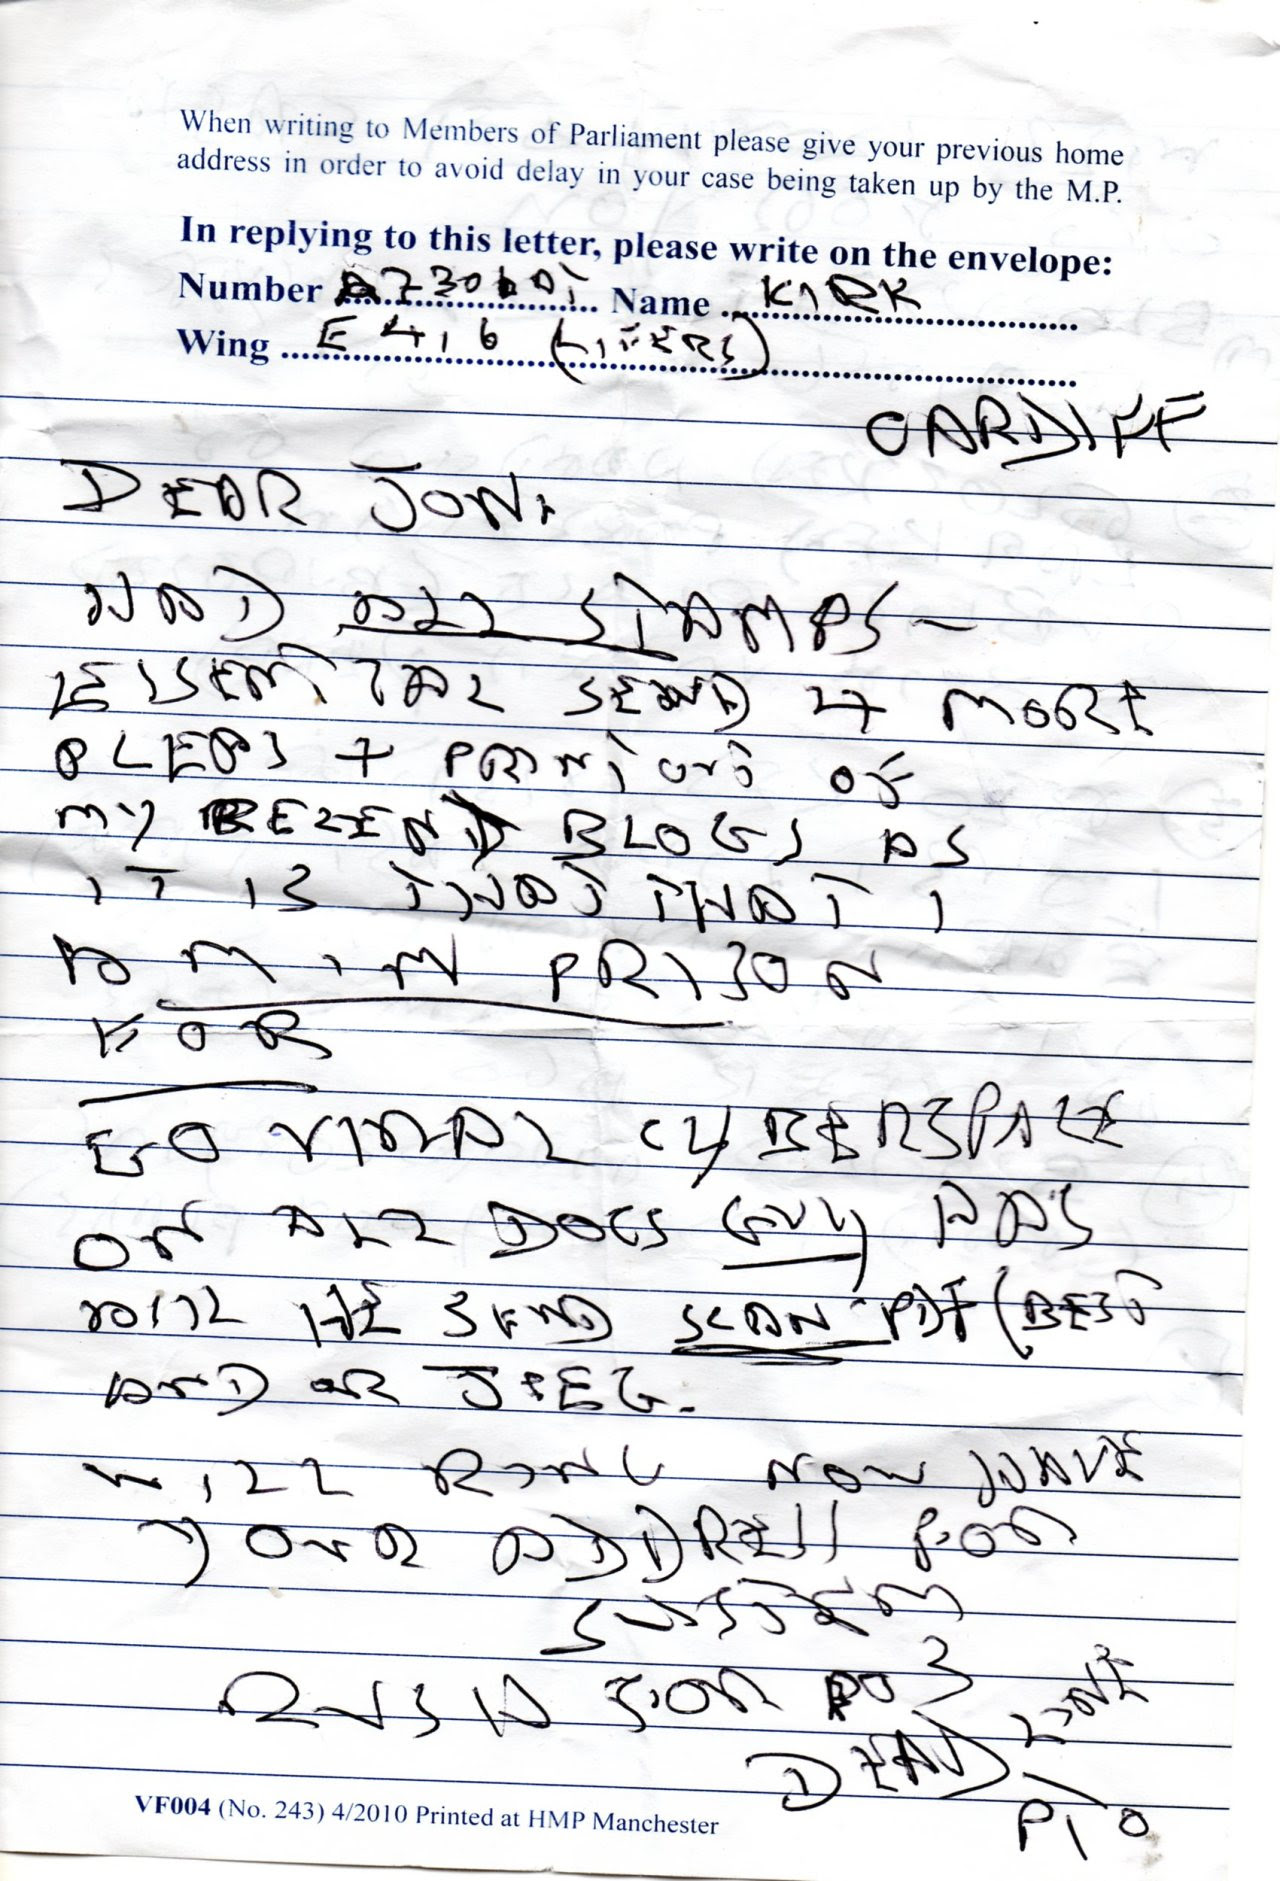 When writing to Members of Parliament please give your previous home
address in order to avoid delay in your case being taken up by the M.P.
In replying to this letter, please write on the envelope:
Number Name KIRK
Wing E 416 (LIFERS)
CARDIFF
DEAR JON,
HAD ALL STAMPS -
ESSENTIAL SEND 4 MORE
PLEAS + PRINT OUT OF
MY BLOGS AS
IT IS THAT THAT I
AM IN PRISON
FOR
GO VIRAL CYBERSPACE
ON ALL DOCS GUY HAS
WILL HE SEND SCAN PDF (BEST
AND OR JPEG.
WILL RING NOW HAVE
YOUR ADDRESS FOR
SYSTEM
RUSH FOR POS
DEAD LINE
PTO
VF004 (No. 243) 4/2010 Printed at HMP Manchester